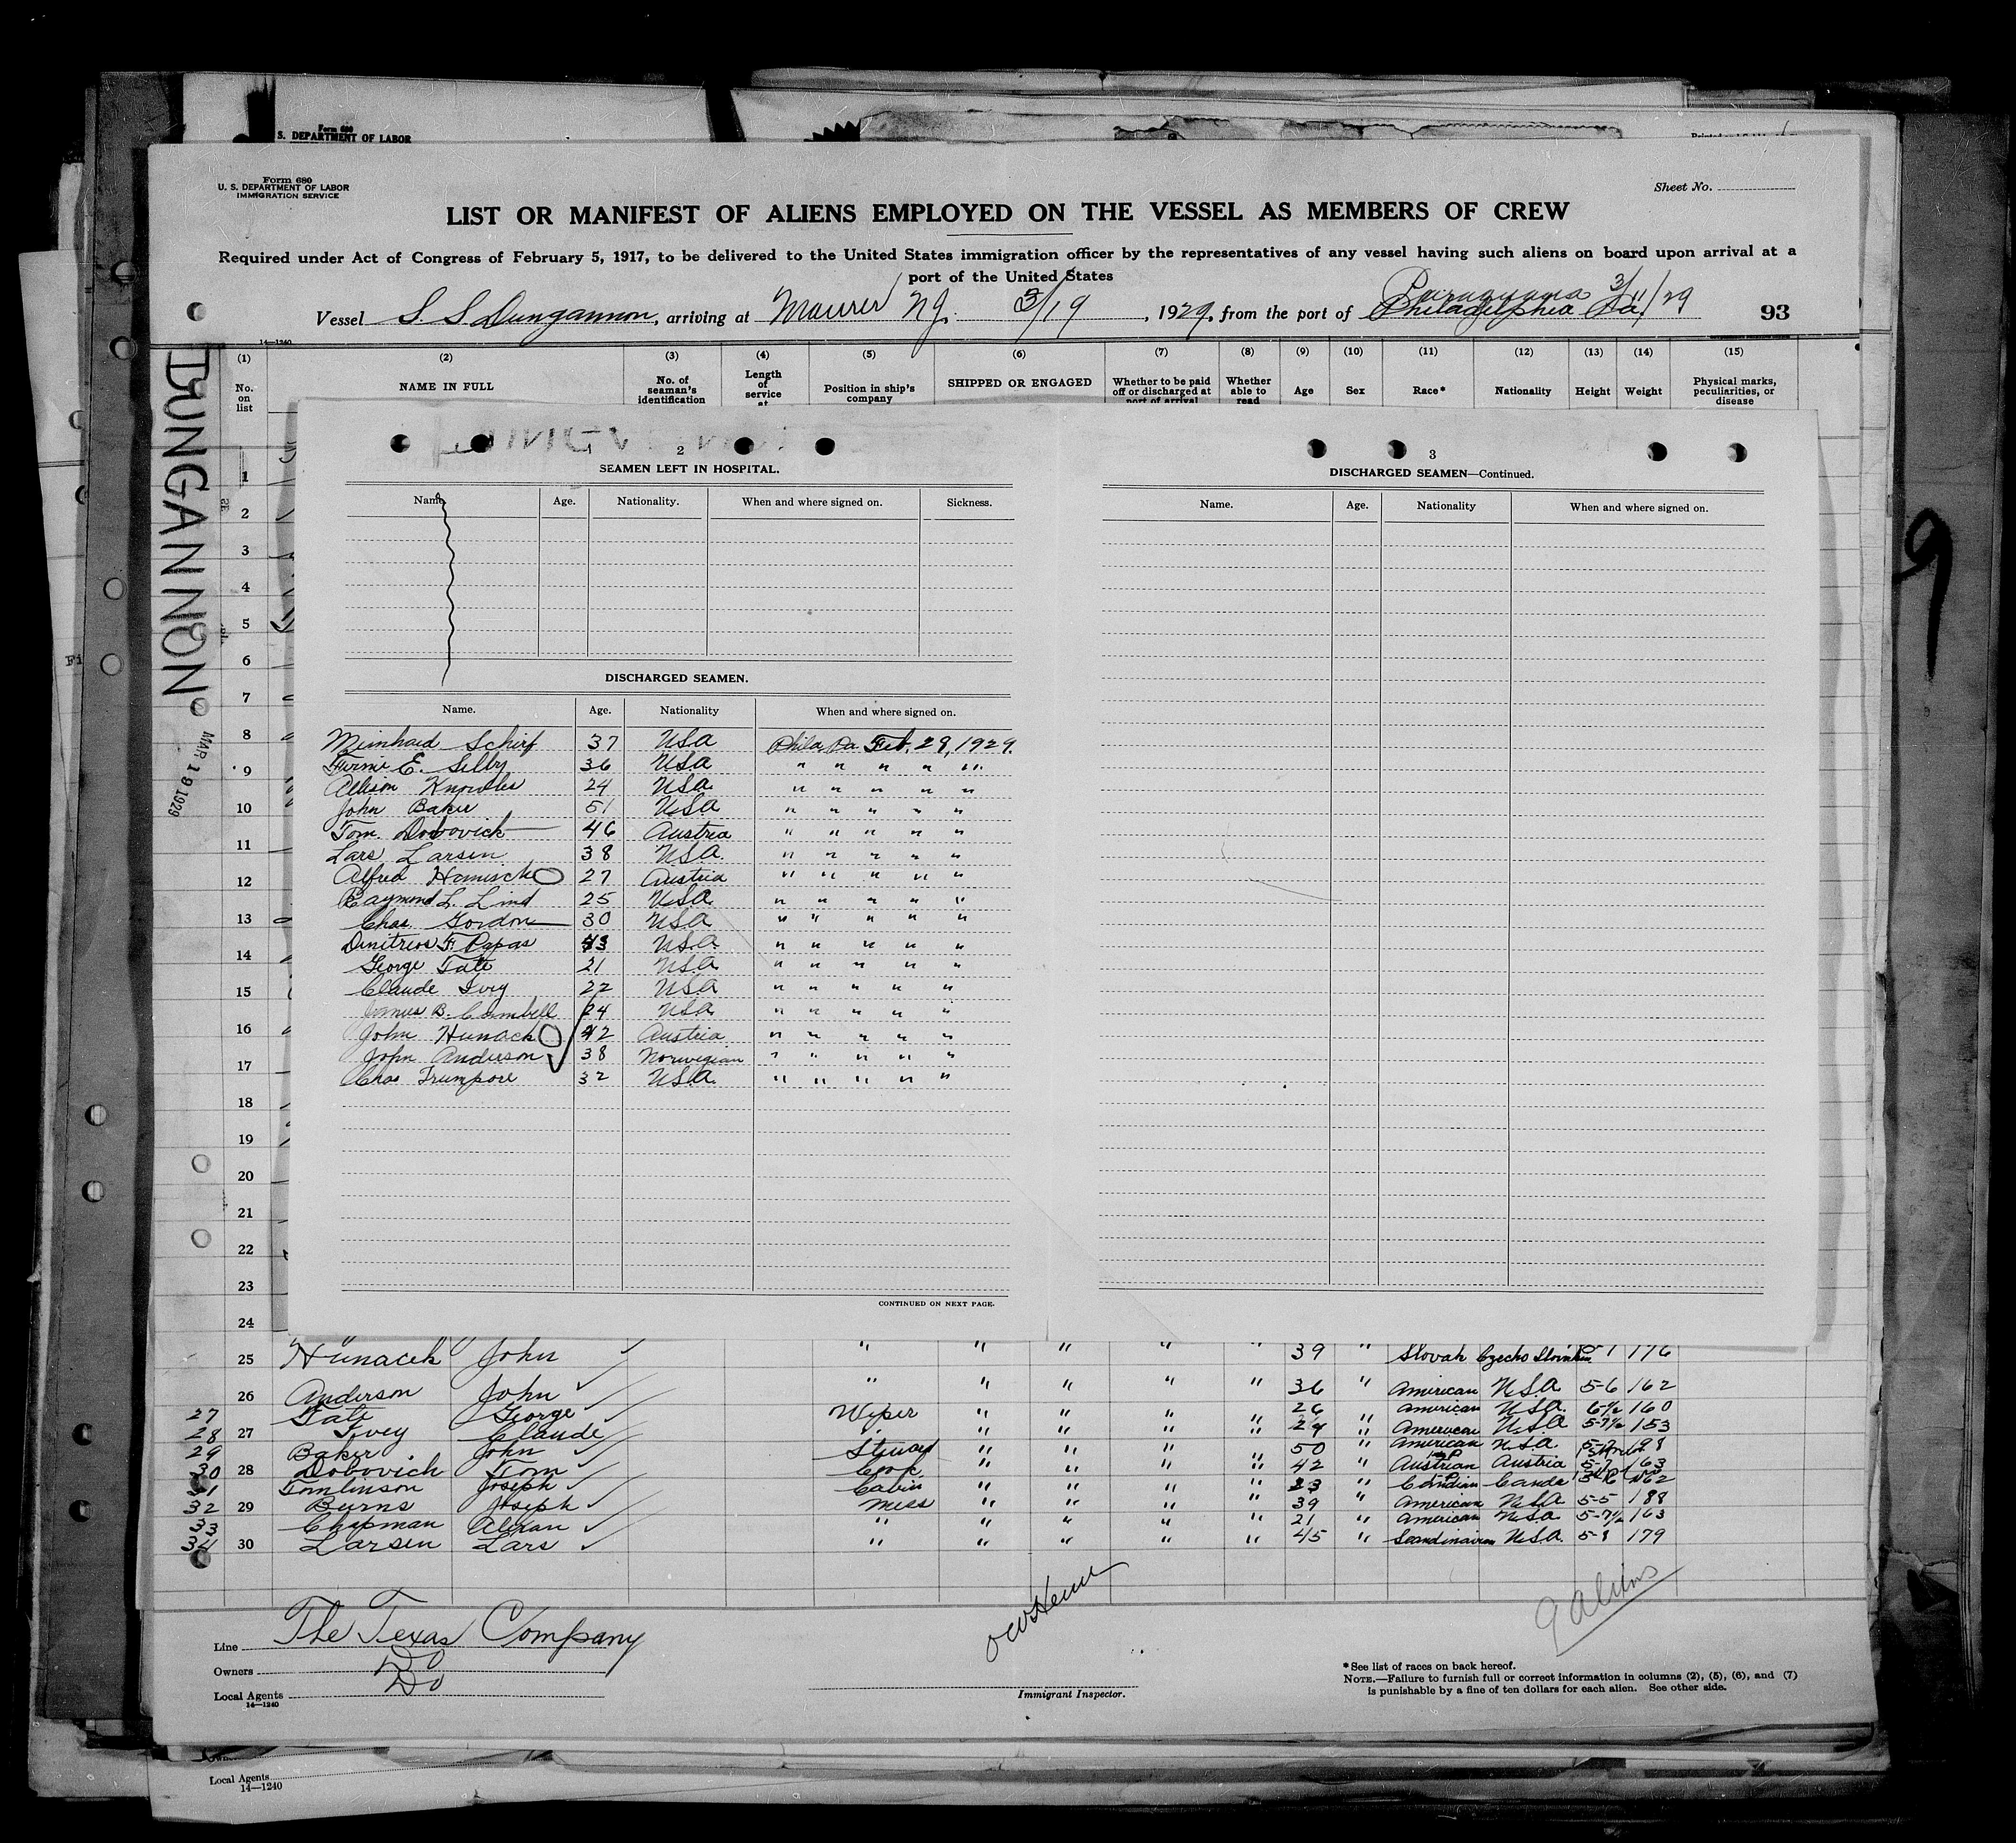 Form 680
S. DEPARTMENT OF LABOR
Form 680
U. S. DEPARTMENT OF LABOR
IMMIGRATION SERVICE
Sheet No.
LIST OR MANIFEST OF ALIENS EMPLOYED ON THE VESSEL AS MEMBERS OF CREW
Required under Act of Congress of February 5, 1917, to be delivered to the United States immigration officer by the representatives of any vessel having such aliens on board upon arrival at a
port of the United States
3/11/29
Vessel S S Dungannon, arriving at Maurer NJ. 3/19, 1929, from the port of Philadelphia Pa. 93
14—1240
(1) (2) (3) (4) (5) (6) (7) (8) (9) (10) (11) (12) (13) (14) (15)
No. on list NAME IN FULL No. of seaman's identification Length of service at Position in ship's company SHIPPED OR ENGAGED Whether to be paid off or discharged at port of arrival Whether able to read Age Sex Race* Nationality Height Weight Physical marks, peculiarities, or disease
DUNGANNON
MAR 19 1929
1
2
3
4
5
6
7
8
9
10
11
12
13
14
15
16
17
18
19
20
21
22
23
24
2
SEAMEN LEFT IN HOSPITAL.
Name Age. Nationality. When and where signed on. Sickness.
DISCHARGED SEAMEN.
Name. Age. Nationality When and where signed on.
Meinhard Schirf 37 USA Phila Pa Feb. 28, 1929.
Fernie E. Selby 36 USA " " " " " "
Allison Knowles 24 USA " " " " "
John Baker 51 USA " " " " "
Tom. Dobovich 46 Austria " " " " "
Lars Larsen 38 USA. " " " " "
Alfred Hanisch 27 Austria " " " " "
Raymond L. Lind 25 USA " " " " "
Chas. Gordon 30 USA " " " " "
Dimitrios F. Papas 43 USA " " " " "
George Tate 21 USA " " " " "
Claude Ivey 22 USA " " " " "
James B. Cambell 24 USA " " " " "
John Hunach 42 Austria " " " " "
John Anderson 38 Norwegian " " " " "
Chas Trumpore 32 USA " " " " "
CONTINUED ON NEXT PAGE.
3
DISCHARGED SEAMEN—Continued.
Name. Age. Nationality When and where signed on.
9
25 Hunacek John " " " " " 39 " Slovak Czecho 176
26 Anderson John " " " " " 36 " American USA 5-6 162
27 Tate George Wiper " " " " 26 " American USA. 160
28 27 Ivey Claude " " " " " 29 " American USA 5-7½ 153
29 Baker John Steward " " " " 50 " American USA
30 28 Dobovich Tom Cook " " " " 42 " Austrian Austria 5-7 163
31 Tomlinson Joseph Cabin " " " " 23 " Candian Canda 162
32 29 Burns Joseph Mess " " " " 39 " American USA 5-5 188
33 Chapman Alexan " " " " " 21 " American USA 5-7½ 163
34 30 Larsen Lars " " " " " 45 " Scandinavian USA. 5-8 179
9 aliens
Line The Texas Company
Owners Do
Local Agents Do
14—1240
Immigrant Inspector.
*See list of races on back hereof.
NOTE.—Failure to furnish full or correct information in columns (2), (5), (6), and (7)
is punishable by a fine of ten dollars for each alien. See other side.
Local Agents
14—1240